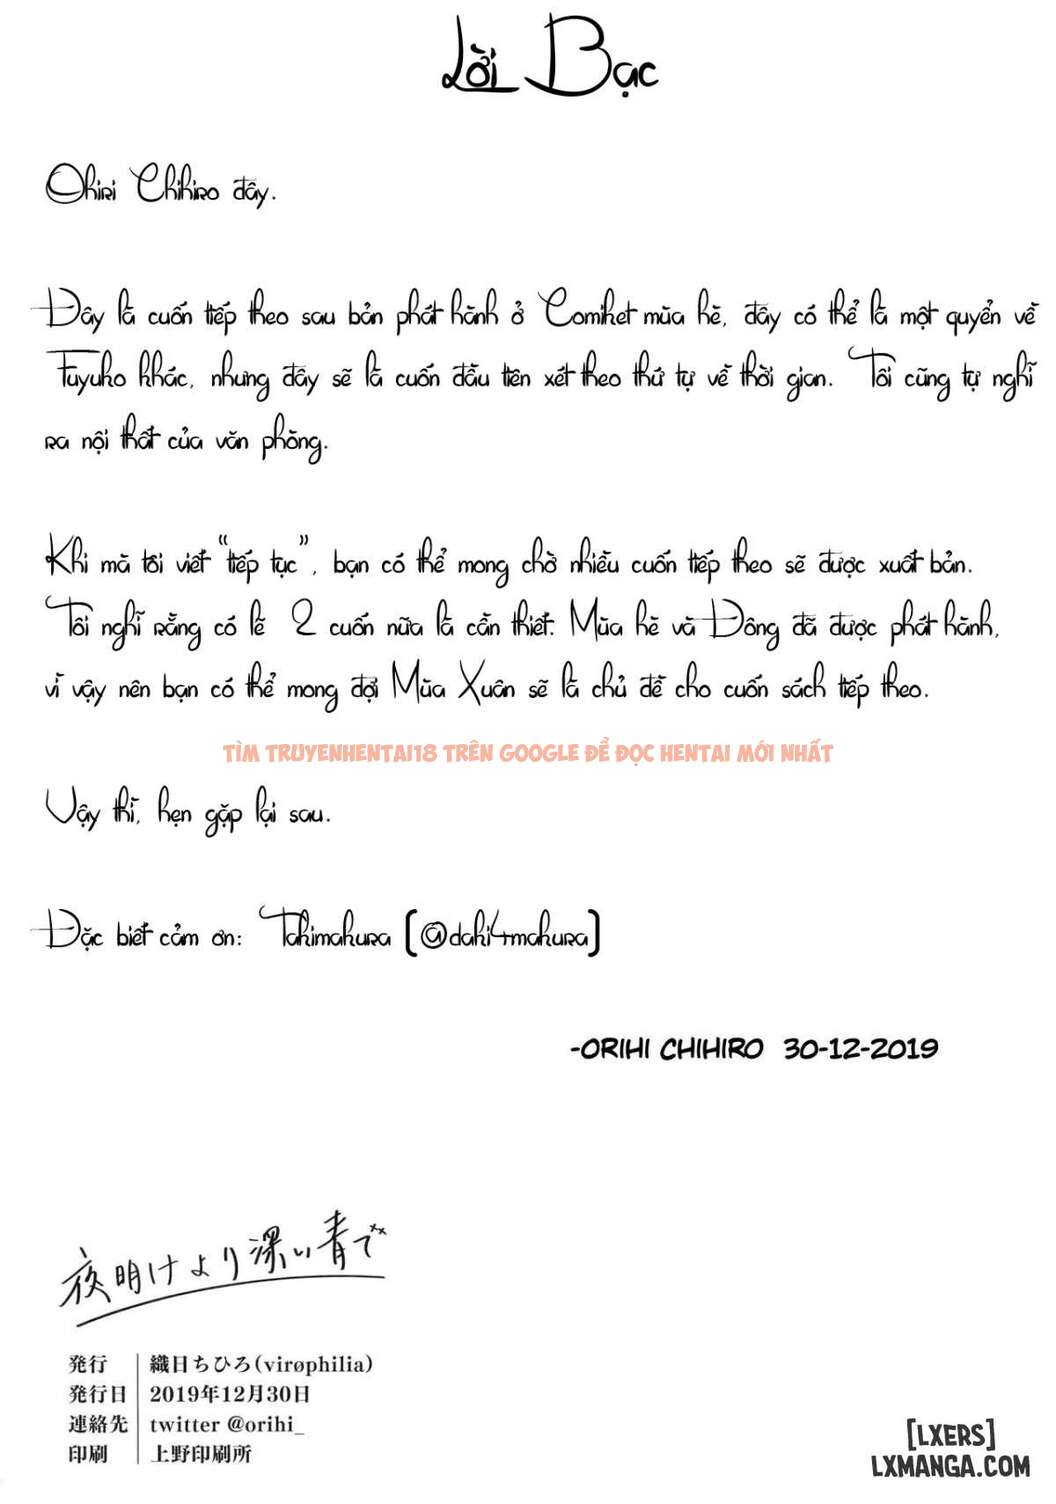 Lời Bạc
Ohiri Chihiro đây.
Đây là cuốn tiếp theo sau bản phát hành ở Comiket mùa hè, đây có thể là một quyển về
Fuyuko khác, nhưng đây sẽ là cuốn đầu tiên xét theo thứ tự về thời gian. Tôi cũng tự nghĩ
ra nội thất của văn phòng.
Khi mà tôi viết "tiếp tục", bạn có thể mong chờ nhiều cuốn tiếp theo sẽ được xuất bản.
Tôi nghĩ rằng có lẽ 2 cuốn nữa là cần thiết. Mùa hè và Đông đã được phát hành,
vì vậy nên bạn có thể mong đợi Mùa Xuân sẽ là chủ đề cho cuốn sách tiếp theo.
TÌM TRUYENHENTAI18 TRÊN GOOGLE ĐỂ ĐỌC HENTAI MỚI NHẤT
Vậy thì, hẹn gặp lại sau.
Đặc biết cảm ơn: Takimakura (@daki4makura)
-ORIHI CHIHIRO 30-12-2019
夜明けより深い青で
発行 織日ちひろ(virøphilia)
発行日 2019年12月30日
連絡先 twitter @orihi_
印刷 上野印刷所
[LXERS]
LXMANGA.COM